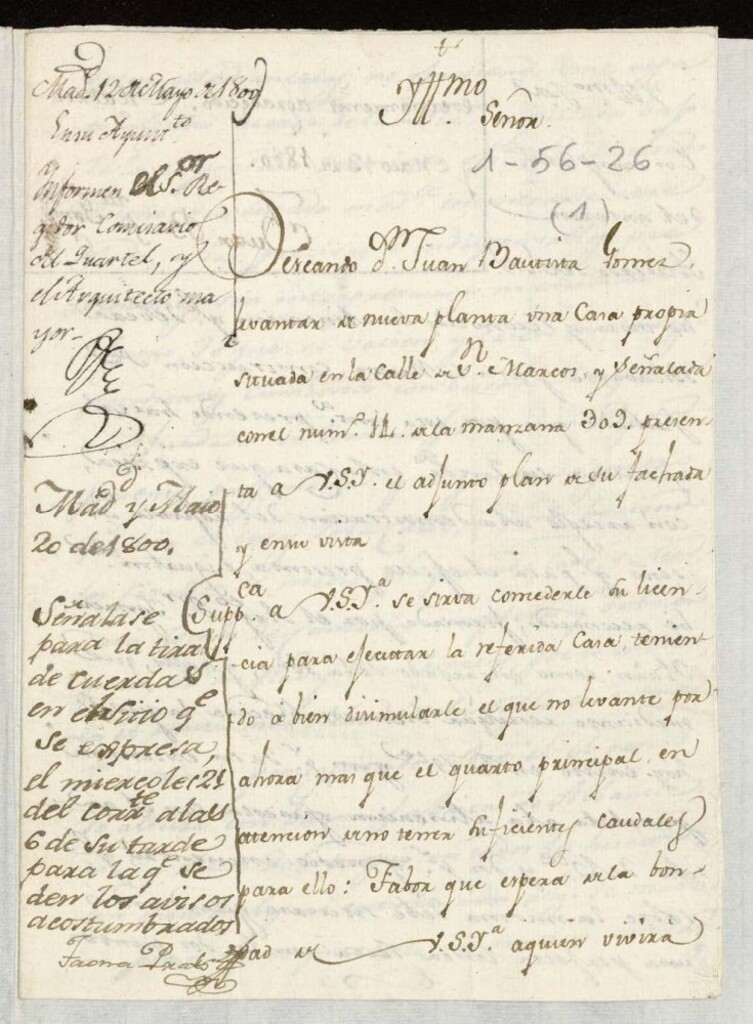 Yllmo
Señor.
1-56-26
(1)
Mad.d 12 de Mayo de 1800
En su Ayunt.to
Informen el S.or Re-
gidor Comisario
del Quartel, y
el Arquitecto ma
yor-
Mad.d y Maio
20 de 1800.
Señalase
para la tira
de cuerdas
en el sitio q.e
se expresa,
el miercoles 21
del corr.te a las
6 de su tarde
para la q.e se
den los avisos
acostumbrados
Deseando d.n Juan Bautista Gomez,
levantar de nueva planta una Casa propia
situada en la Calle de S.n Marcos, y señalada
con el num.o 14. de la manzana 303. presen-
ta a V.S.Y. el adjunto plan de su fachada
y en su vista
Supp.ca a V.S.Y.a se sirva concederle su licen-
cia para ejecutar la referida Casa, tenien-
do à bien disimularle el que no levante por
ahora mas que el quarto principal, en
atencion de no tener suficientes caudales
para ello: Fabor que espera de la bon-
dad de V.S.Y.a aquien vivirá